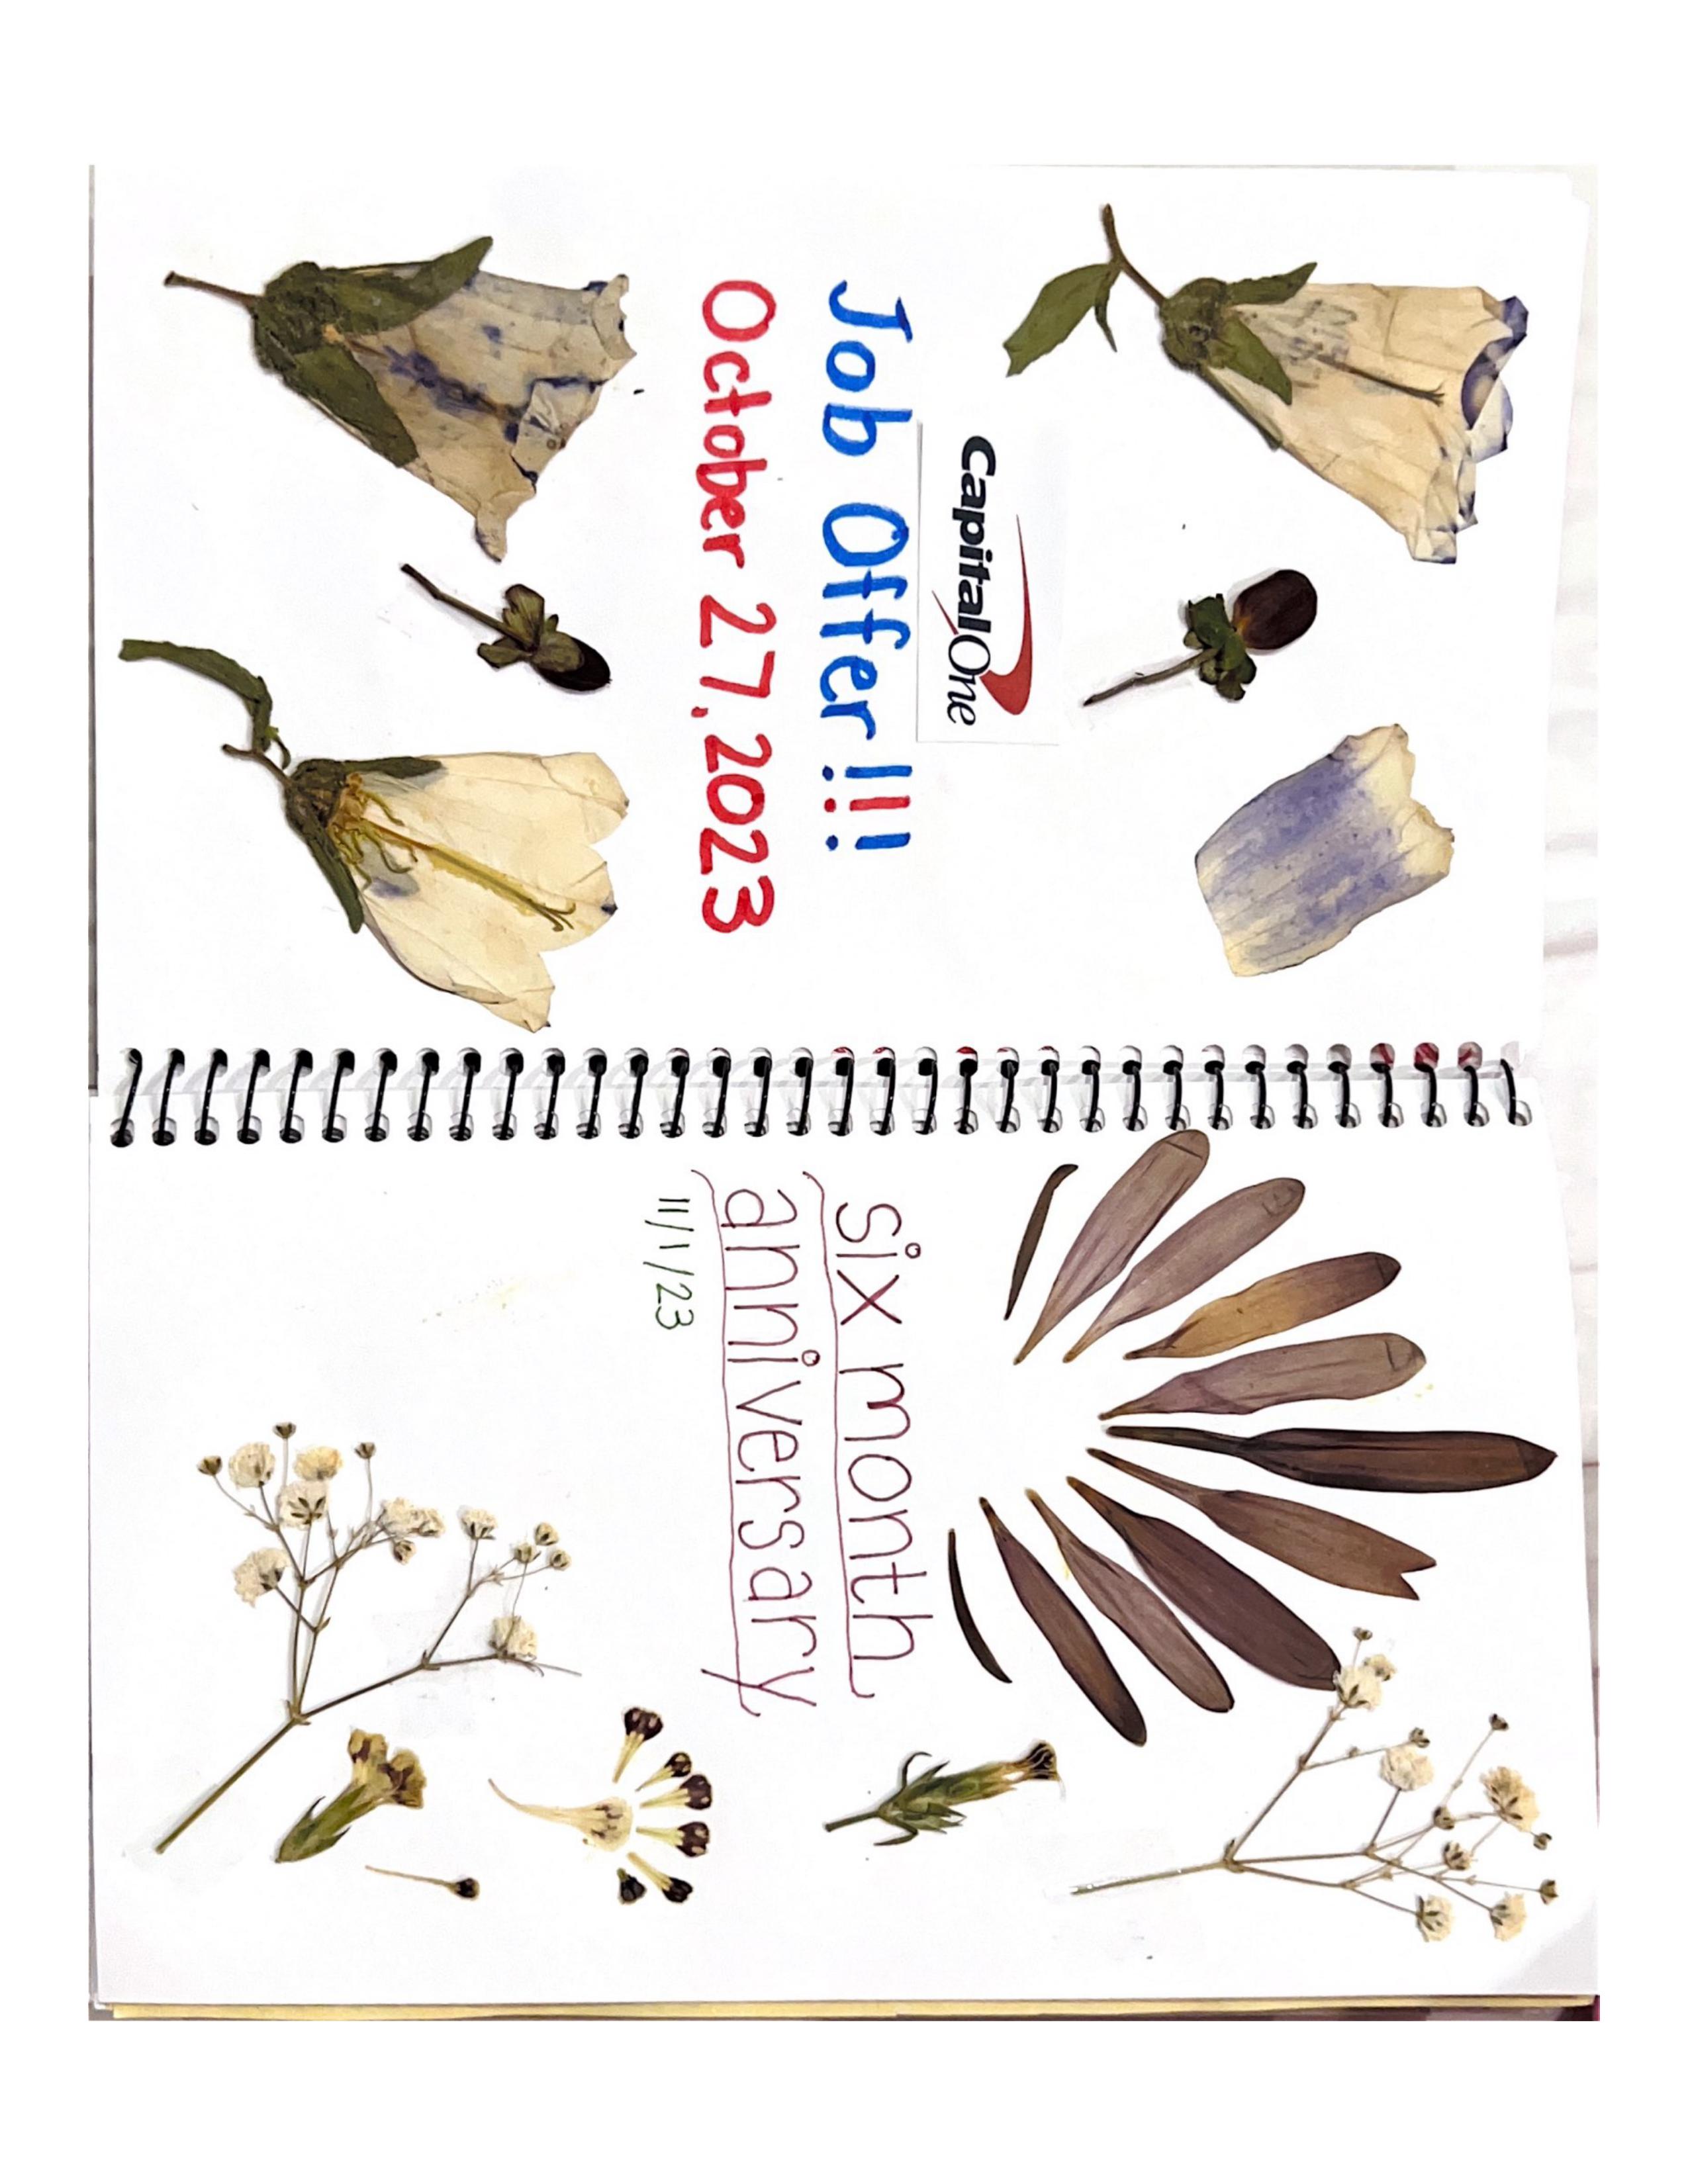 CapitalOne
Job Offer!!!
October 27, 2023
six month
anniversary
11/1/23